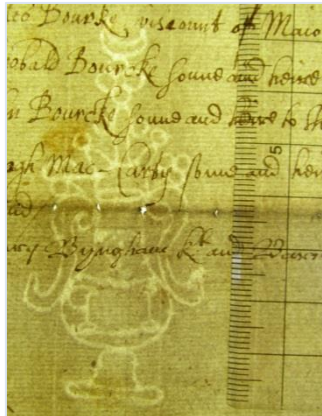 Bourke viscount of Maio
obald Bourcke sonne and heire
n Bourcke sonne and heire to th
Mac-Carty sonne and hei
Byngham kt and Baro
5